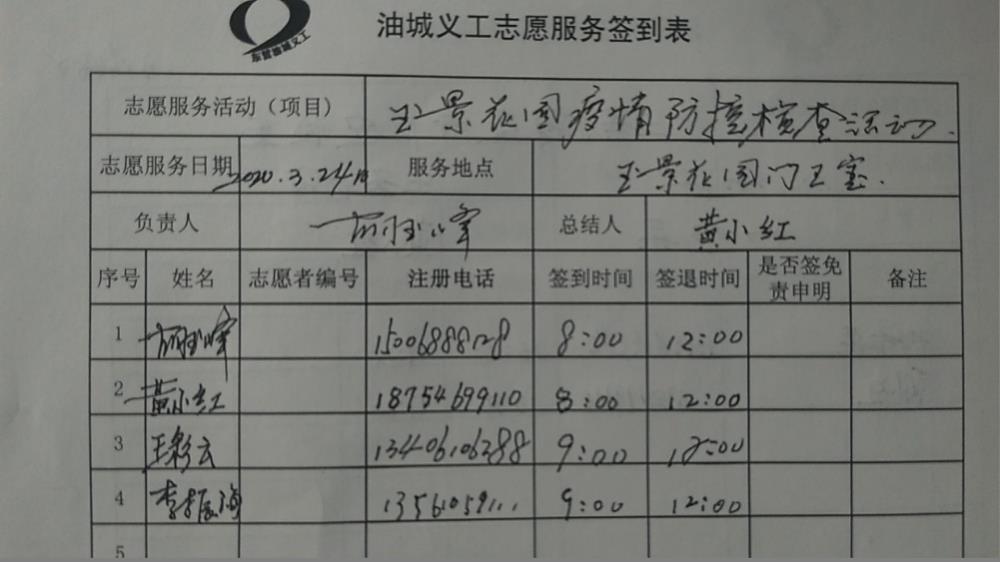 东营油城义工
油城义工志愿服务签到表
志愿服务活动（项目） 玉景花园疫情防控检查活动.
志愿服务日期 2020.3.24日 服务地点 玉景花园门卫室.
负责人 总结人 黄小红
序号 姓名 志愿者编号 注册电话 签到时间 签退时间 是否签免责申明 备注
1 8:00 12:00
2 黄小红 18754699110 8:00 12:00
3 王彩云 13406106288 9:00 12:00
4 李振海 9:00 12:00
5